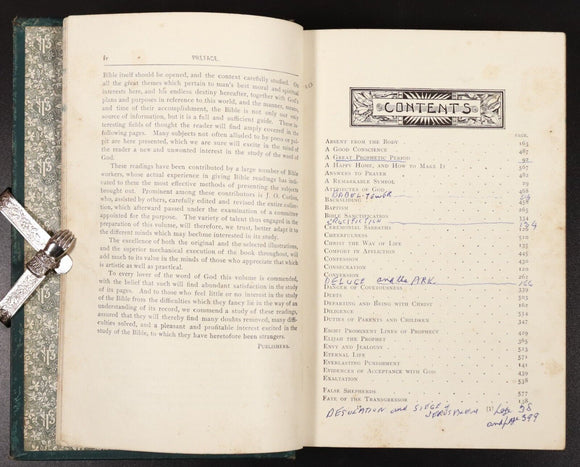 iv PREFACE.
Bible itself should be opened, and the context carefully studied. On
all the great themes which pertain to man's best moral and spiritual
interests here, and his endless destiny hereafter, together with God's
plans and purposes in reference to this world, and the manner, means,
and time of their accomplishment, the Bible is not only our only
source of information, but it is a full and sufficient guide. These in-
teresting fields of thought the reader will find amply covered in the
following pages. Many subjects not often alluded to by press or pul-
pit are here presented, which we are sure will excite in the mind of
the reader a new and unwonted interest in the study of the word of
God.
These readings have been contributed by a large number of Bible
workers, whose actual experience in giving Bible readings has indi-
cated to them the most effective methods of presenting the subjects
sought out. Prominent among these contributors is J. O. Corliss,
who, assisted by others, carefully edited and revised the entire collec-
tion, which afterward passed under the examination of a committee
appointed for the purpose. The variety of talent thus engaged in the
preparation of this volume, will therefore, we trust, better adapt it to
the different minds which may become interested in its study.
The excellence of both the original and the selected illustrations,
and the superior mechanical execution of the book throughout, will
add much to its value in the minds of those who appreciate that which
is artistic as well as practical.
To every lover of the word of God this volume is commended,
with the belief that such will find abundant satisfaction in the study
of its pages. And to those who feel little or no interest in the study
of the Bible from the difficulties which they fancy lie in the way of an
understanding of its record, we commend a study of these readings,
assured that they will thereby find many doubts removed, many diffi-
culties solved, and a pleasant and profitable interest excited in the
study of the Bible, to which they have heretofore been strangers.
PUBLISHERS.
CONTENTS
PAGE.
ABSENT FROM THE BODY 163
A GOOD CONSCIENCE 487
A GREAT PROPHETIC PERIOD 92
A HAPPY HOME, AND HOW TO MAKE IT 567
ANSWERS TO PRAYER 462
A REMARKABLE SYMBOL 29
ATTRIBUTES OF GOD
BABEL-TOWER
BACKSLIDING 458
BAPTISM
BIBLE SANCTIFICATION 334
CRUCIFICTION
CEREMONIAL SABBATHS 120
CHEERFULNESS
CHRIST THE WAY OF LIFE
COMFORT IN AFFLICTION 445
CONFESSION
CONSECRATION
CONVERSION 267
DELUGE and the ARK
DANGER OF COVETOUSNESS 559
DEBTS
DEPARTING AND BEING WITH CHRIST
DILIGENCE
DUTIES OF PARENTS AND CHILDREN 347
EIGHT PROMINENT LINES OF PROPHECY
ELIJAH THE PROPHET 385
ENVY AND JEALOUSY 525
ETERNAL LIFE
EVERLASTING PUNISHMENT 141
EVIDENCES OF ACCEPTANCE WITH GOD 439
EXALTATION 538
FALSE SHEPHERDS 577
FATE OF THE TRANSGRESSOR 138
[1]
DESOLATION and SIEGE of
JERUSALEM
and 399